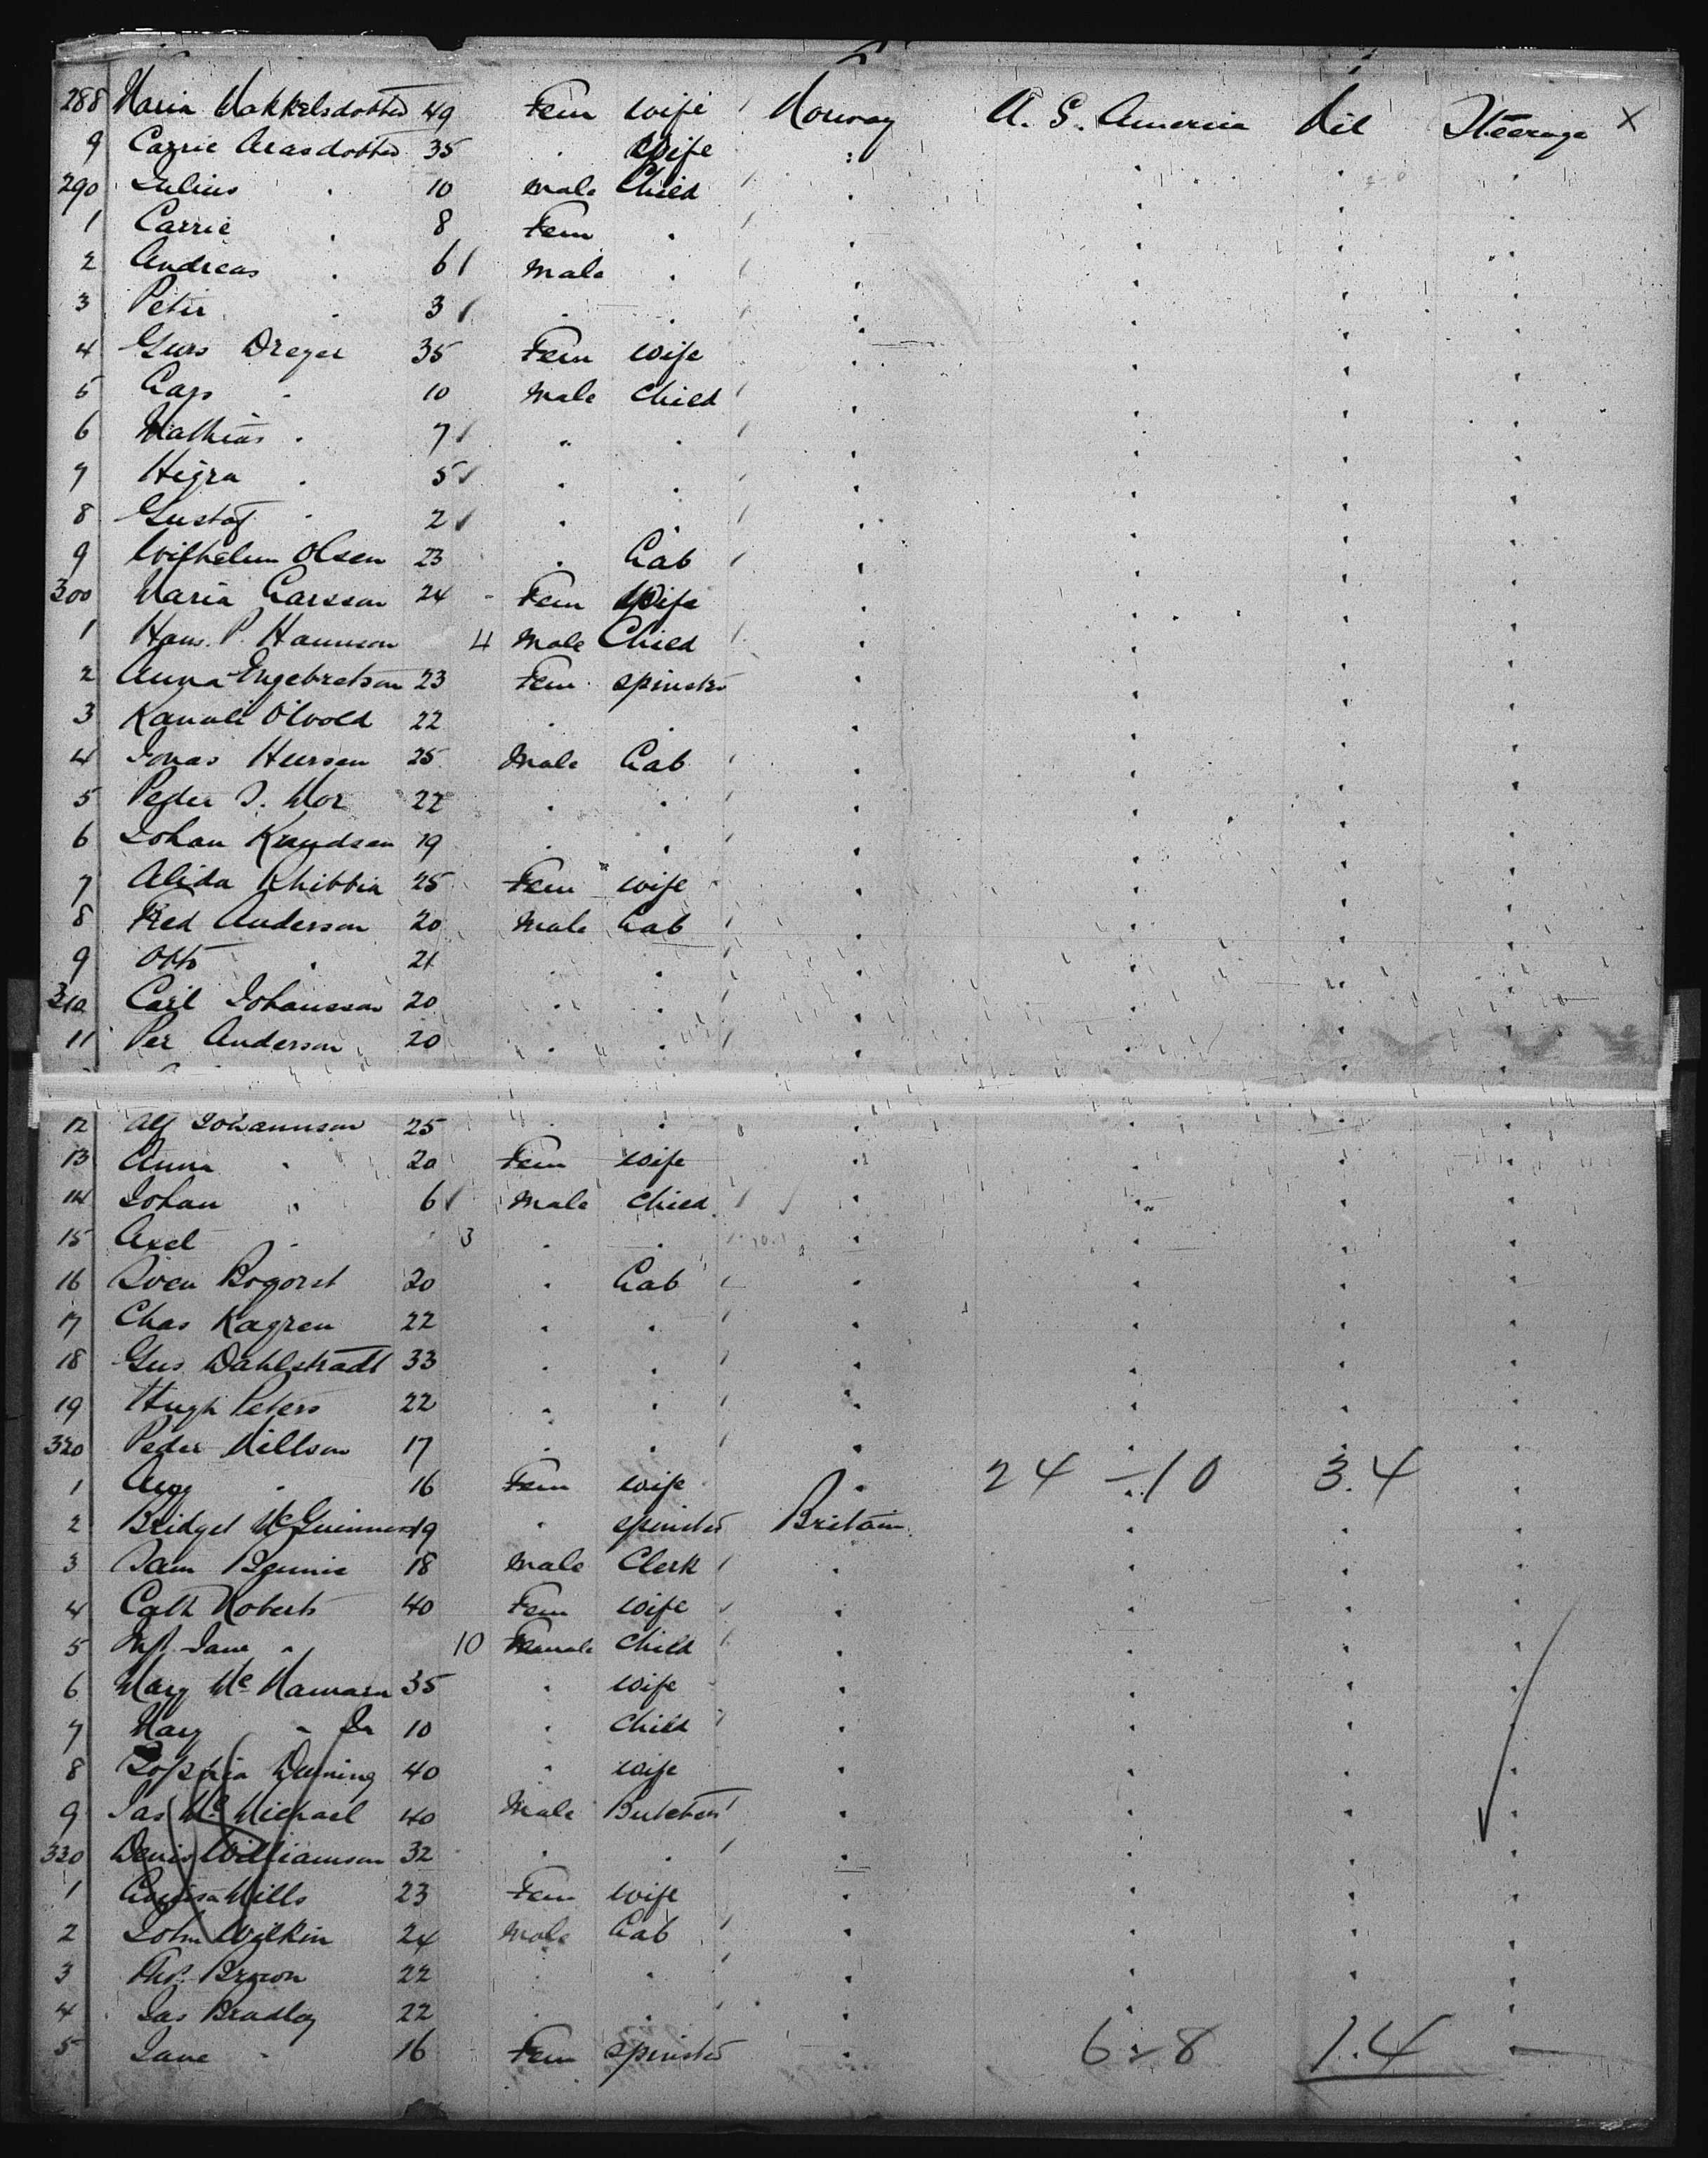 288 Maria Makkelsdotter 49 Fem wife Norway U. S. America Nil Steerage X
9 Carrie Arasdotter 35 . Wife
290 Julius . 10 male Child
1 Carrie . 8 Fem .
2 Andreas . 6 male .
3 Peter . 3 . .
4 Guro Dreyer 35 Fem wife
5 Lars . 10 Male Child
6 Mathias . 7 " .
7 Higra . 5 . .
8 Gustaf . 2 . .
9 Wilhelm Olsen 23 . Lab
300 Maria Larsson 24 Fem Wife
1 Hans. P. Hannson 4 Male Child
2 Anna Engebretson 23 Fem spinster
3 22 . .
4 Jonas 25 Male Lab
5 Peder 22 . .
6 Johan Knudsen 19 . .
7 Alida 25 Fem wife
8 Fred Anderson 20 Male Lab
9 Otto . 21 . .
310 Carl Johansson 20 . .
11 Per Anderson 20 . .
12 Alf Johannson 25 . .
13 Anna . 20 Fem wife
14 Johan " 6 Male child
15 Axel . 3 . .
16 Sven Bogorst 20 . Lab
17 Chas Kagren 22 . .
18 Gus Dahlstradt 33 . .
19 Hugh Peters 22 . .
320 Peder Nillson 17 . .
1 . 16 Fem wife 24 - 10 3.4
2 Bridget McGuinness 19 " spinster Britain
3 Sam 18 Male Clerk
4 Cath Roberts 40 Fem wife
5 Jane " 10 Female Child
6 Mary Mc Namara 35 . wife
7 Mary " Jr 10 . Child
8 Sophia 40 " wife
9 Jas Mc Michael 40 Male Butcher
330 Denis Williamson 32 . .
1 Louisa Mills 23 Fem wife
2 John Wilkin 24 Male Lab
3 Thos. Brown 22 . .
4 Jas Bradley 22 . .
5 Jane " 16 Fem spinster 6 - 8 1.4